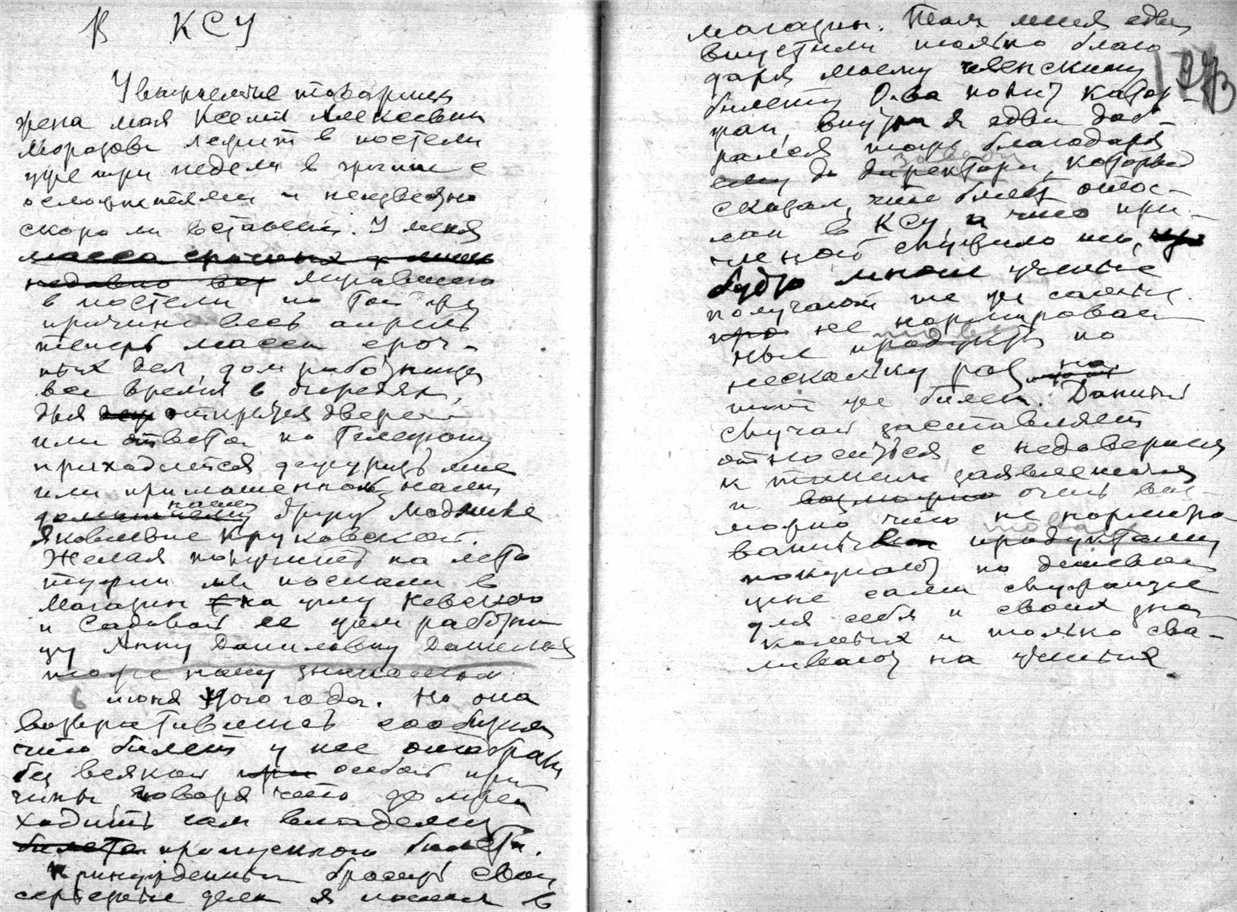 В КСУ
Уважаемые товарищи
жена моя Ксения Алексеевна
Морозова лежит в постели
уже три недели в гриппе с
осложнениями и неизвестно
скоро ли встанет. У меня
масса срочных
недавно
в постели по той же
причине весь апрель
теперь масса сроч-
ных дел, дом работница
все время в очередях,
для открытия дверей
или ответа по телефону
приходится дежурить мне
или приглашенной нами
нашей другу
Яковлевне Круковской.
Желая получить на лето
туфли мы послали в
магазин на углу Невского
и Садовой ее дом работни
цу Анну Даниловну
тоже нашу знакомую
6 июня го года. Но она
возвратившись сообщила
что билет у нее отобрали
без всякой особой при
чины, говоря что должен
ходить сам владелец
билета пропускного билета.
Принужденный бросить свои
серьезные дела я пошел в
магазин. Там меня едва
впустили только благо
даря моему членскому
билету О-ва полит катор-
жан, внутри я едва доб
рался тоже благодаря
ему до директора, который
сказал, что билет отос-
лан в КСУ и что при-
чиной служило то,
будто многие ученые
получают не
не нормирован
ные продукты по
нескольку раз на
тот же билет. Данный
случай заставляет
относиться с недоверием
к таким заявлениям
и возможно очень воз-
можно что не нормиро-
ванными продуктами
покупают по дешевой
цене сами служащие
для себя и своих зна
комых и только сва-
ливают на ученых